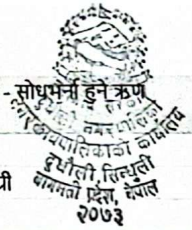 - सोधभर्ना हुने ऋण
नगरकार्यपालिकाको कार्यालय
दुधौली, सिन्धुली
बागमती प्रदेश, नेपाल
२०७३